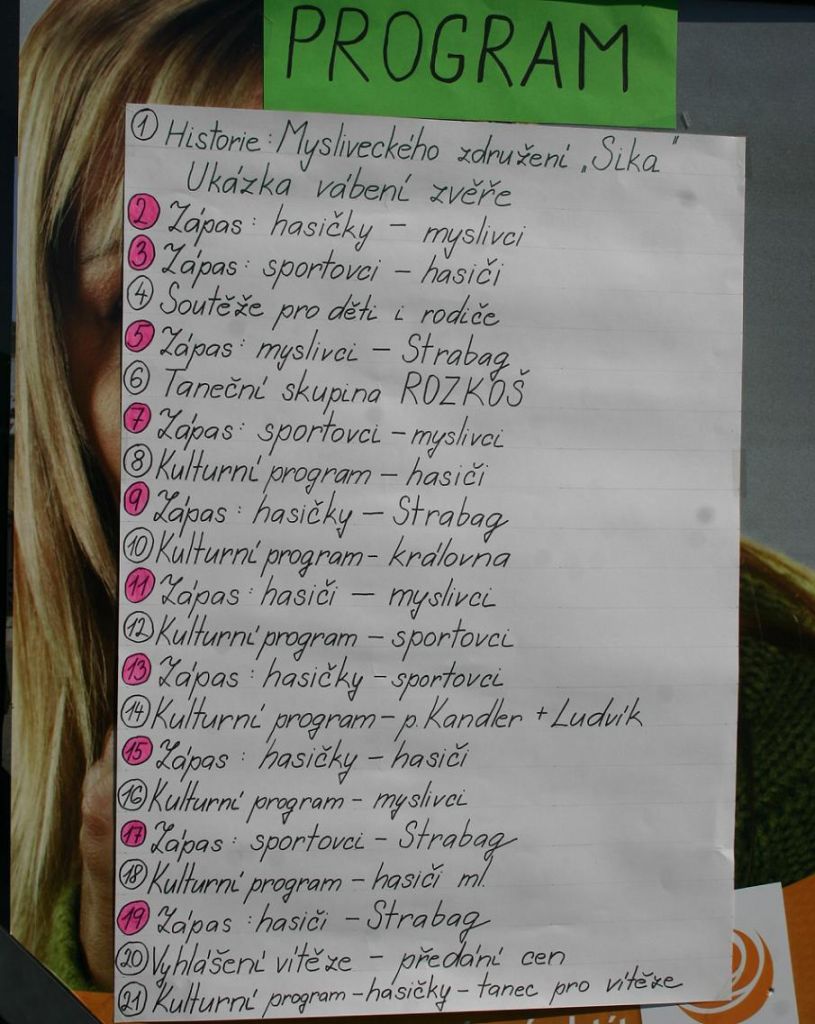 PROGRAM
1 Historie: Mysliveckého združení „Sika"
Ukázka vábení zvěře
2 Zápas: hasičky - myslivci
3 Zápas: sportovci - hasiči
4 Soutěže pro děti i rodiče
5 Zápas: myslivci - Strabag
6 Taneční skupina ROZKOŠ
7 Zápas: sportovci - myslivci
8 Kulturní program - hasiči
9 Zápas: hasičky - Strabag
10 Kulturní program - královna
11 Zápas: hasiči - myslivci
12 Kulturní program - sportovci
13 Zápas: hasičky - sportovci
14 Kulturní program - p. Kandler + Ludvík
15 Zápas: hasičky - hasiči
16 Kulturní program - myslivci
17 Zápas: sportovci - Strabag
18 Kulturní program - hasiči ml.
19 Zápas: hasiči - Strabag
20 Vyhlášení vítěze - předání cen
21 Kulturní program - hasičky - tanec pro vítěze